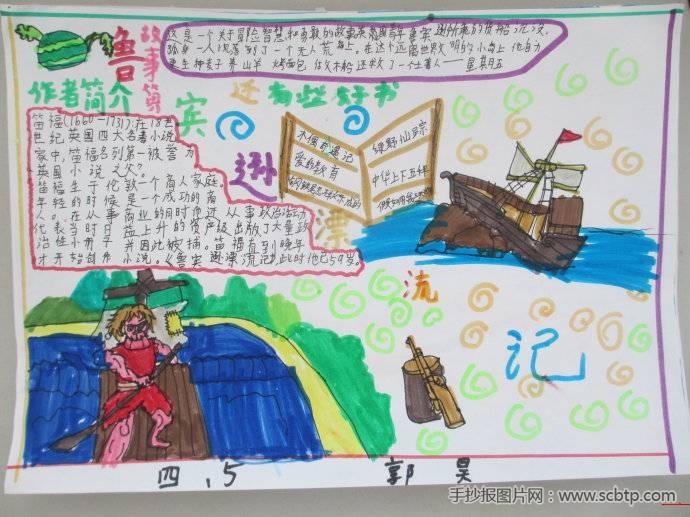 鲁宾逊漂流记
故事简
这是一个关于冒险智慧和勇敢的故事英国青年鲁宾逊所乘的货船沉没，
独身一人流落到了一个无人荒岛上。在这个远离世界文明的小岛上他自力
更生种麦子养山羊 烤面包 做木船 还救了一个土著人——星期五
作者简介
笛福(1660-1731)在18世
世纪英国四大名著小说
家中，笛福名列第一被誉为
英国小说之父。
笛福生于伦敦一个商人家庭。
年轻的时候是一个成功的商
人。在从事商业的时而还从事政治活动
代表当时日益上升的资产级出版了大量政
治性小册子并因此被捕。笛福直到晚年
才开始创作小说。《鲁宾逊漂流记》此时他已59岁。
还有些好书
木偶奇遇记
爱的教育
钢铁是怎样炼成的
绿野仙踪
中华上下五千年
假如给我三天光明
四、5
郭昊
手抄报图片网：www.scbtp.com